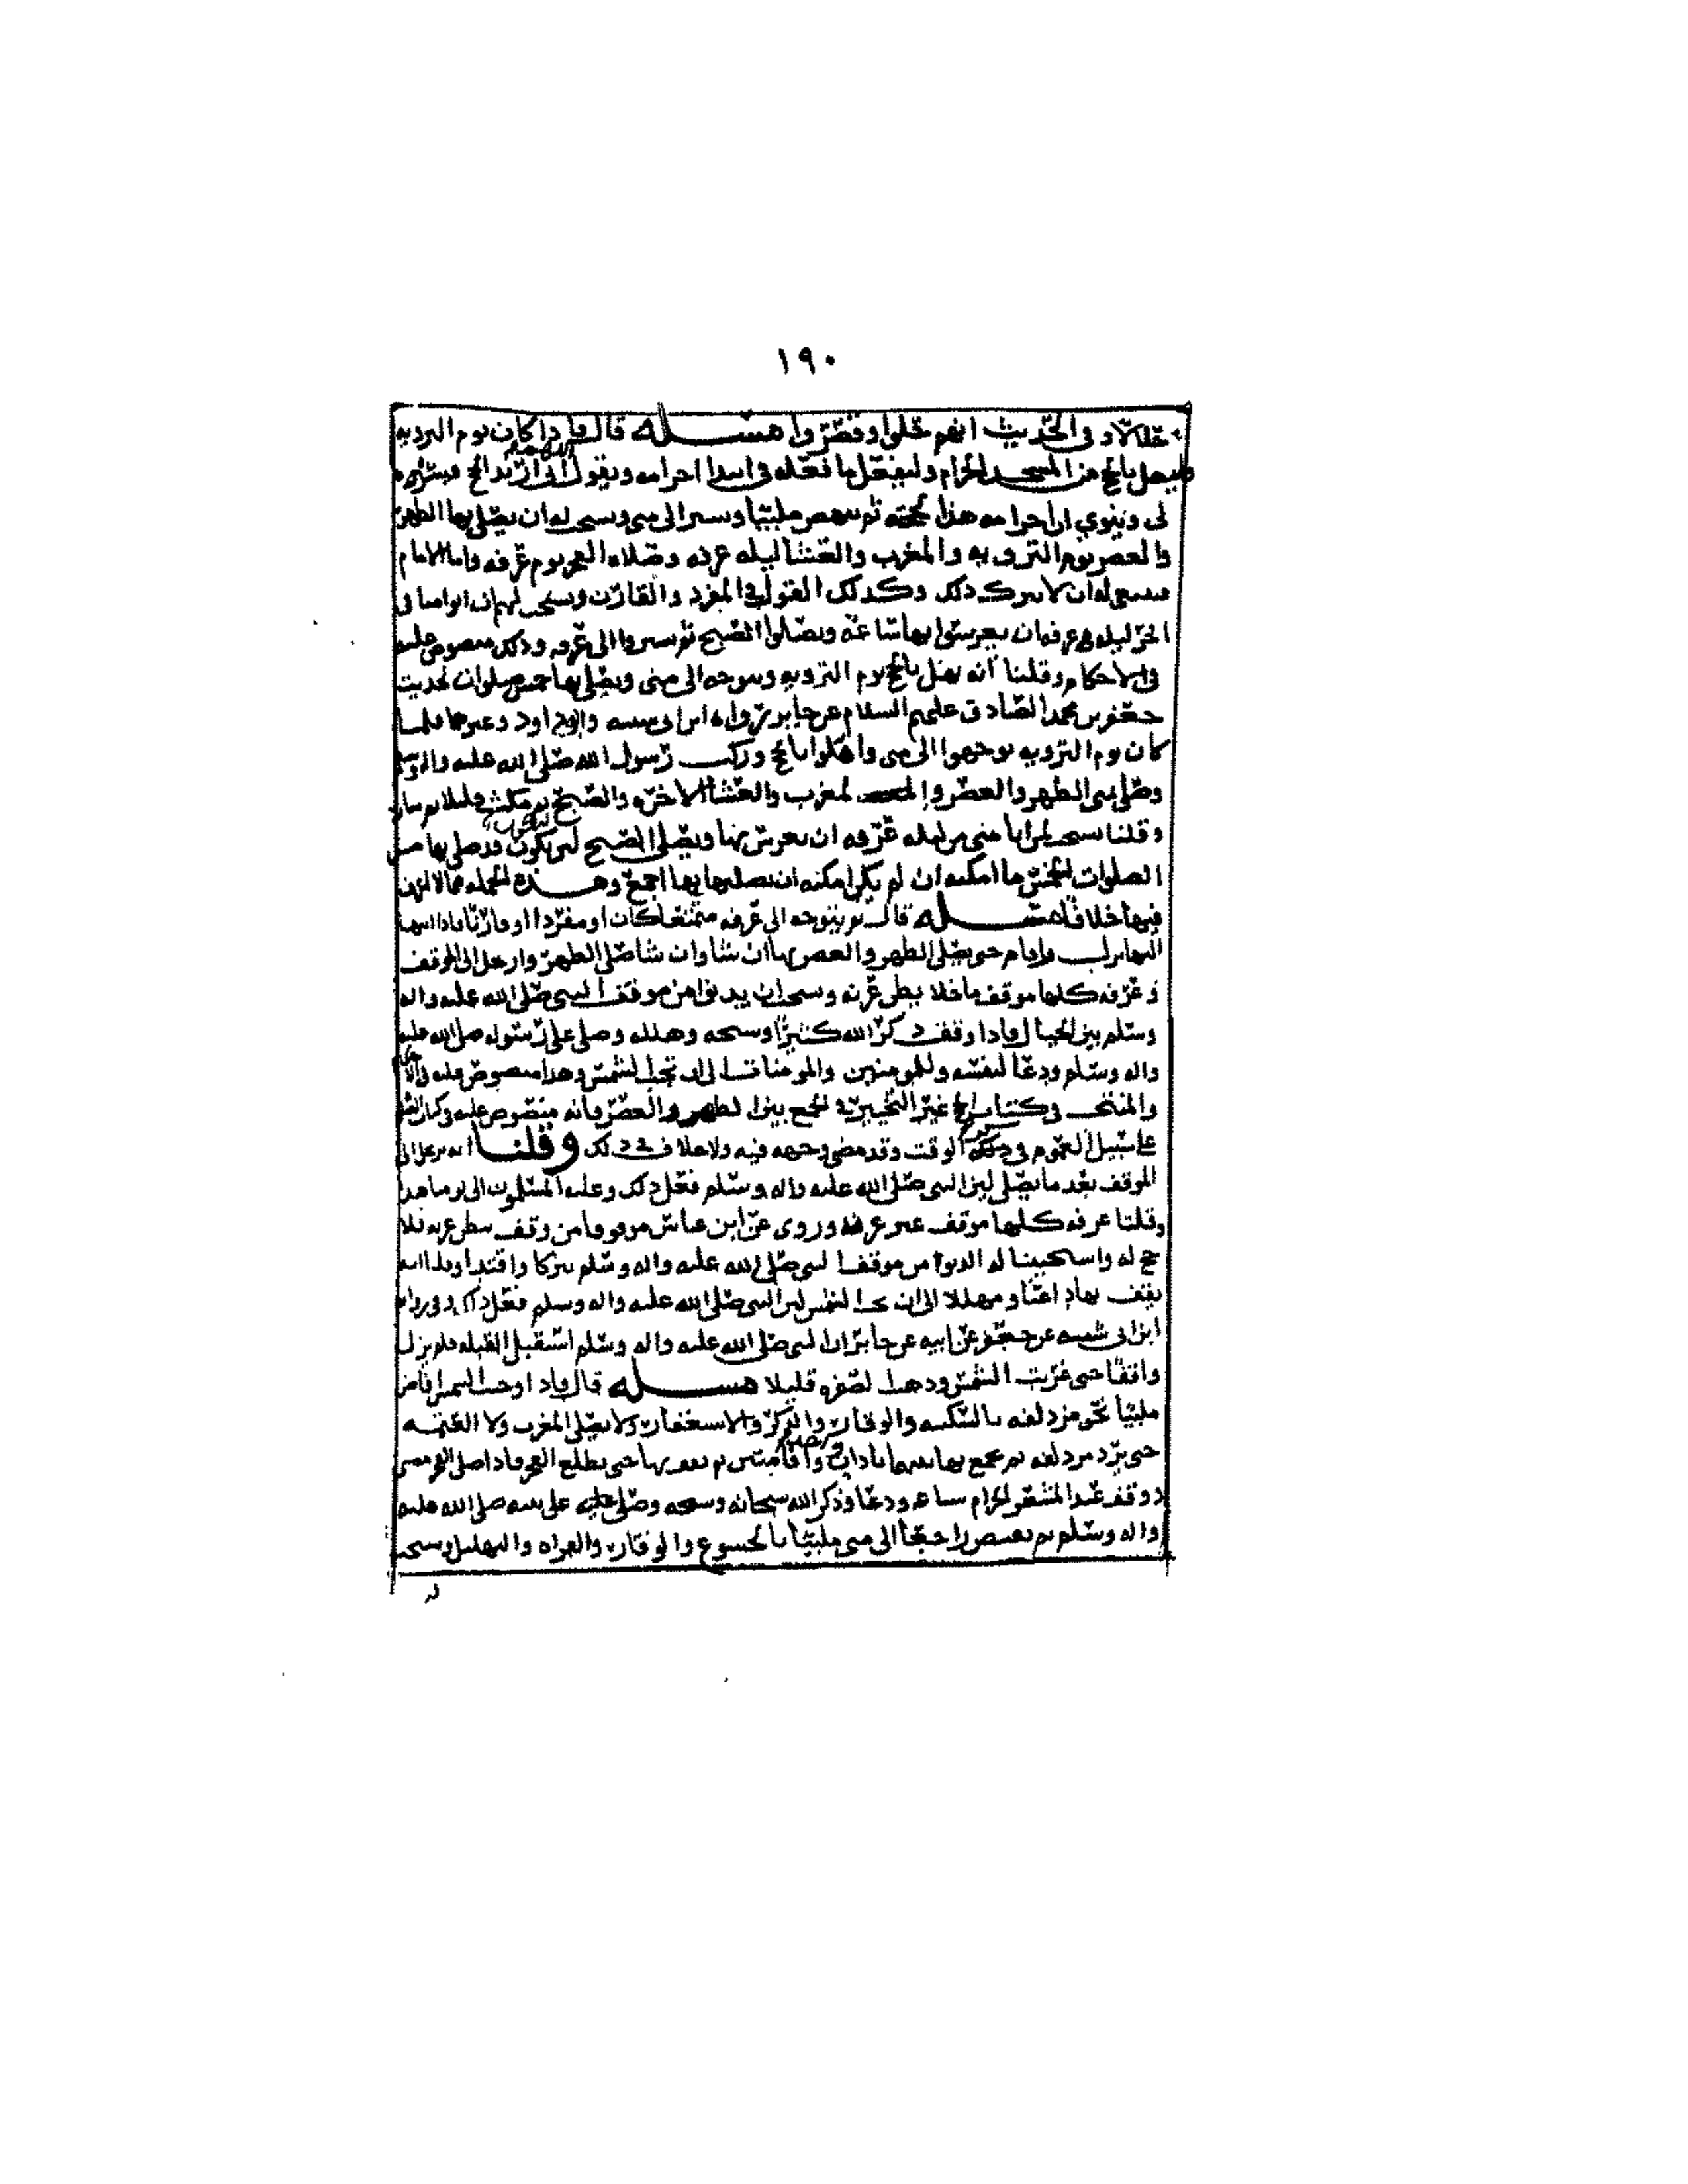 ١٩٠
حلالا وفي الحديث انهم حلوا وقصروا مسئله قال فاذا كان يوم الترويه
فليهل بالحج من المسجد الحرام وليفعل ما فعله في ابتدا احرامه ويقول اللهم اني اريد الحج فيسره
لي وينوي ان احرامه هذا لحجته ثم ينهض ملبيا ويسير الى منى ويستحب له ان يصلي بها الظهر
والعصر يوم الترويه والمغرب والعشا ليله عرفه وصلاه الفجر يوم عرفه واما الامام
فينبغي له ان لا يترك ذلك وكذلك القول في المفرد والقارن ويستحب لهم ان اتوا منا في
اخر ليله عرفه ان يعرسوا بها ساعه ويصلوا الصبح ثم يسيروا الى عرفه وذلك منصوص عليه
في الاحكام وقلنا انه يهل بالحج يوم الترويه ويتوجه الى منى ويصلي بها خمس صلوات لحديث
جعفر بن محمد الصادق عليهم السلام عن جابر رواه ابن ابي شيبه وابو داود وغيرهما فلما
كان يوم الترويه توجهوا الى منى واهلوا بالحج وركب رسول الله صلى الله عليه واله وسلم
وصلى بمنى الظهر والعصر والمغرب والعشا الاخره والصبح ثم مكث قليلا ثم سار
وقلنا يستحب لمن اتا منى من ليله عرفه ان يعرس بها ويصلي الصبح ليكون قد صلى بها من
الصلوات الخمس ما امكنه ان لم يكن امكنه ان يصليها بها اجمع وهذه الجمله مما لا اعرف
فيها خلافا مسئله قال ثم يتوجه الى عرفه متمتعا كان او مفردا او قارنا فاذا انتهى
اليها نزل واقام حتى يصلي الظهر والعصر بها ان شا وان شا صلى الظهر وارتحل الى الموقف
وعرفه كلها موقف ما خلا بطن عرنه ويستحب ان يدنوا من موقف النبي صلى الله عليه واله
وسلم بين الجبال فاذا وقف ذكر الله كثيرا وسبحه وهلله وصلى على رسوله صلى الله عليه
واله وسلم ودعا لنفسه وللمومنين والمومنات الى ان تجب الشمس وهذا منصوص عليه في الاحكام
والمنتخب وكتاب الحج غير التخيير في الجمع بين الظهر والعصر فانه منصوص عليه
على سبيل العموم في الوقت وقد مضى وجهه فيه ولا خلاف في ذلك وقلنا انه يرتحل الى
الموقف بعد ما يصلي لان النبي صلى الله عليه واله وسلم فعل ذلك وعليه المسلمون الى يومنا هذا
وقلنا عرفه كلها موقف غير عرنه وروي عن ابن عباس موقوفا من وقف ببطن عرنه فلا
حج له واستحببنا له الدنوا من موقف النبي صلى الله عليه واله وسلم تبركا واقتدا وقلنا انه
يقف بها داعيا ومهللا الى ان تجب الشمس لان النبي صلى الله عليه واله وسلم فعل ذلك
ابن ابي شيبه عن جعفر عن ابيه عن جابر ان النبي صلى الله عليه واله وسلم استقبل القبله فلم يزل
واقفا حتى غربت الشمس وذهبت الصفره قليلا مسئله قال فاذا وجبت الشمس افاض
ملبيا نحو مزدلفه بالسكينه والوقار والذكر والاستغفار ولا يصلي المغرب ولا العتمه
حتى يرد مزدلفه ثم يجمع بها بينهما باذان واقامتين ثم يقف بها حتى يطلع الفجر فاذا صلى الفجر مضى
ووقف عند المشعر الحرام ساعه ودعا وذكر الله سبحانه وسبحه وصلى على نبيه صلى الله عليه
واله وسلم ثم يفيض راجعا الى منى ملبيا بالخشوع والوقار والقراه والتهليل ويستحب
له